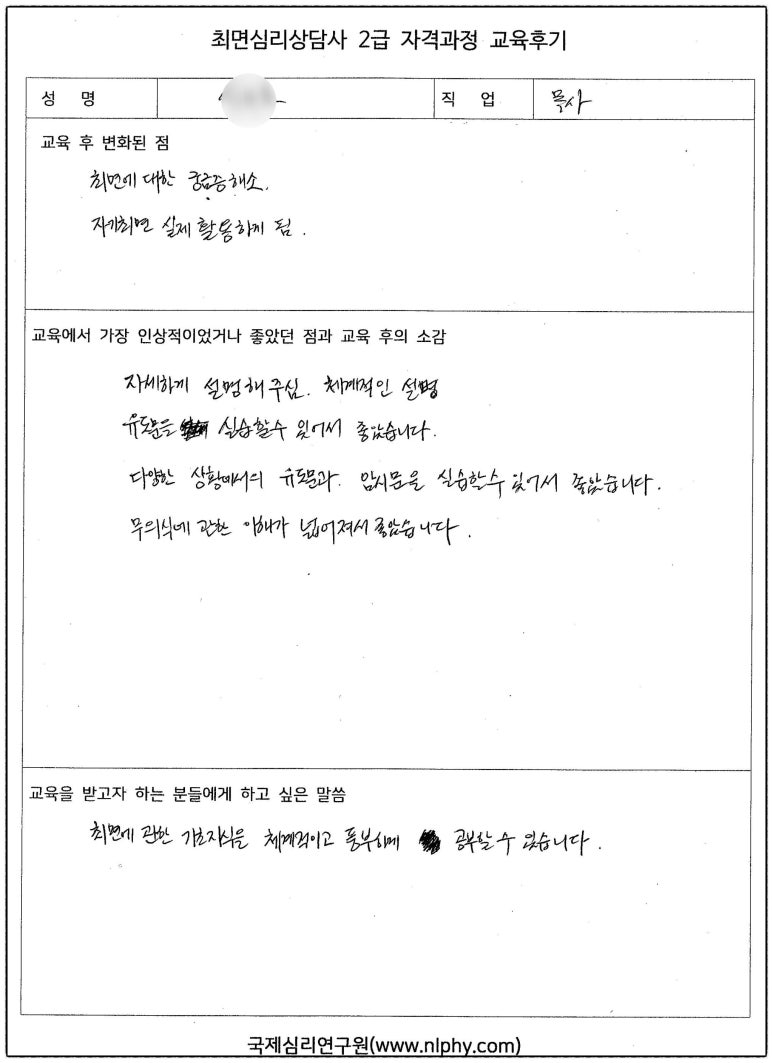 최면심리상담사 2급 자격과정 교육후기
성 명 직 업 목사
교육 후 변화된 점
최면에 대한 궁금증해소.
자기최면 실제 활용하게 됨.
교육에서 가장 인상적이었거나 좋았던 점과 교육 후의 소감
자세하게 설명해주심. 체계적인 설명
유도문을 실습할수 있어서 좋았습니다.
다양한 상황에서의 유도문과 암시문을 실습할수 있어서 좋았습니다.
무의식에 관한 이해가 넓어져서 좋았습니다.
교육을 받고자 하는 분들에게 하고 싶은 말씀
최면에 관한 기초지식을 체계적이고 풍부하게 공부할 수 있습니다.
국제심리연구원(www.nlphy.com)